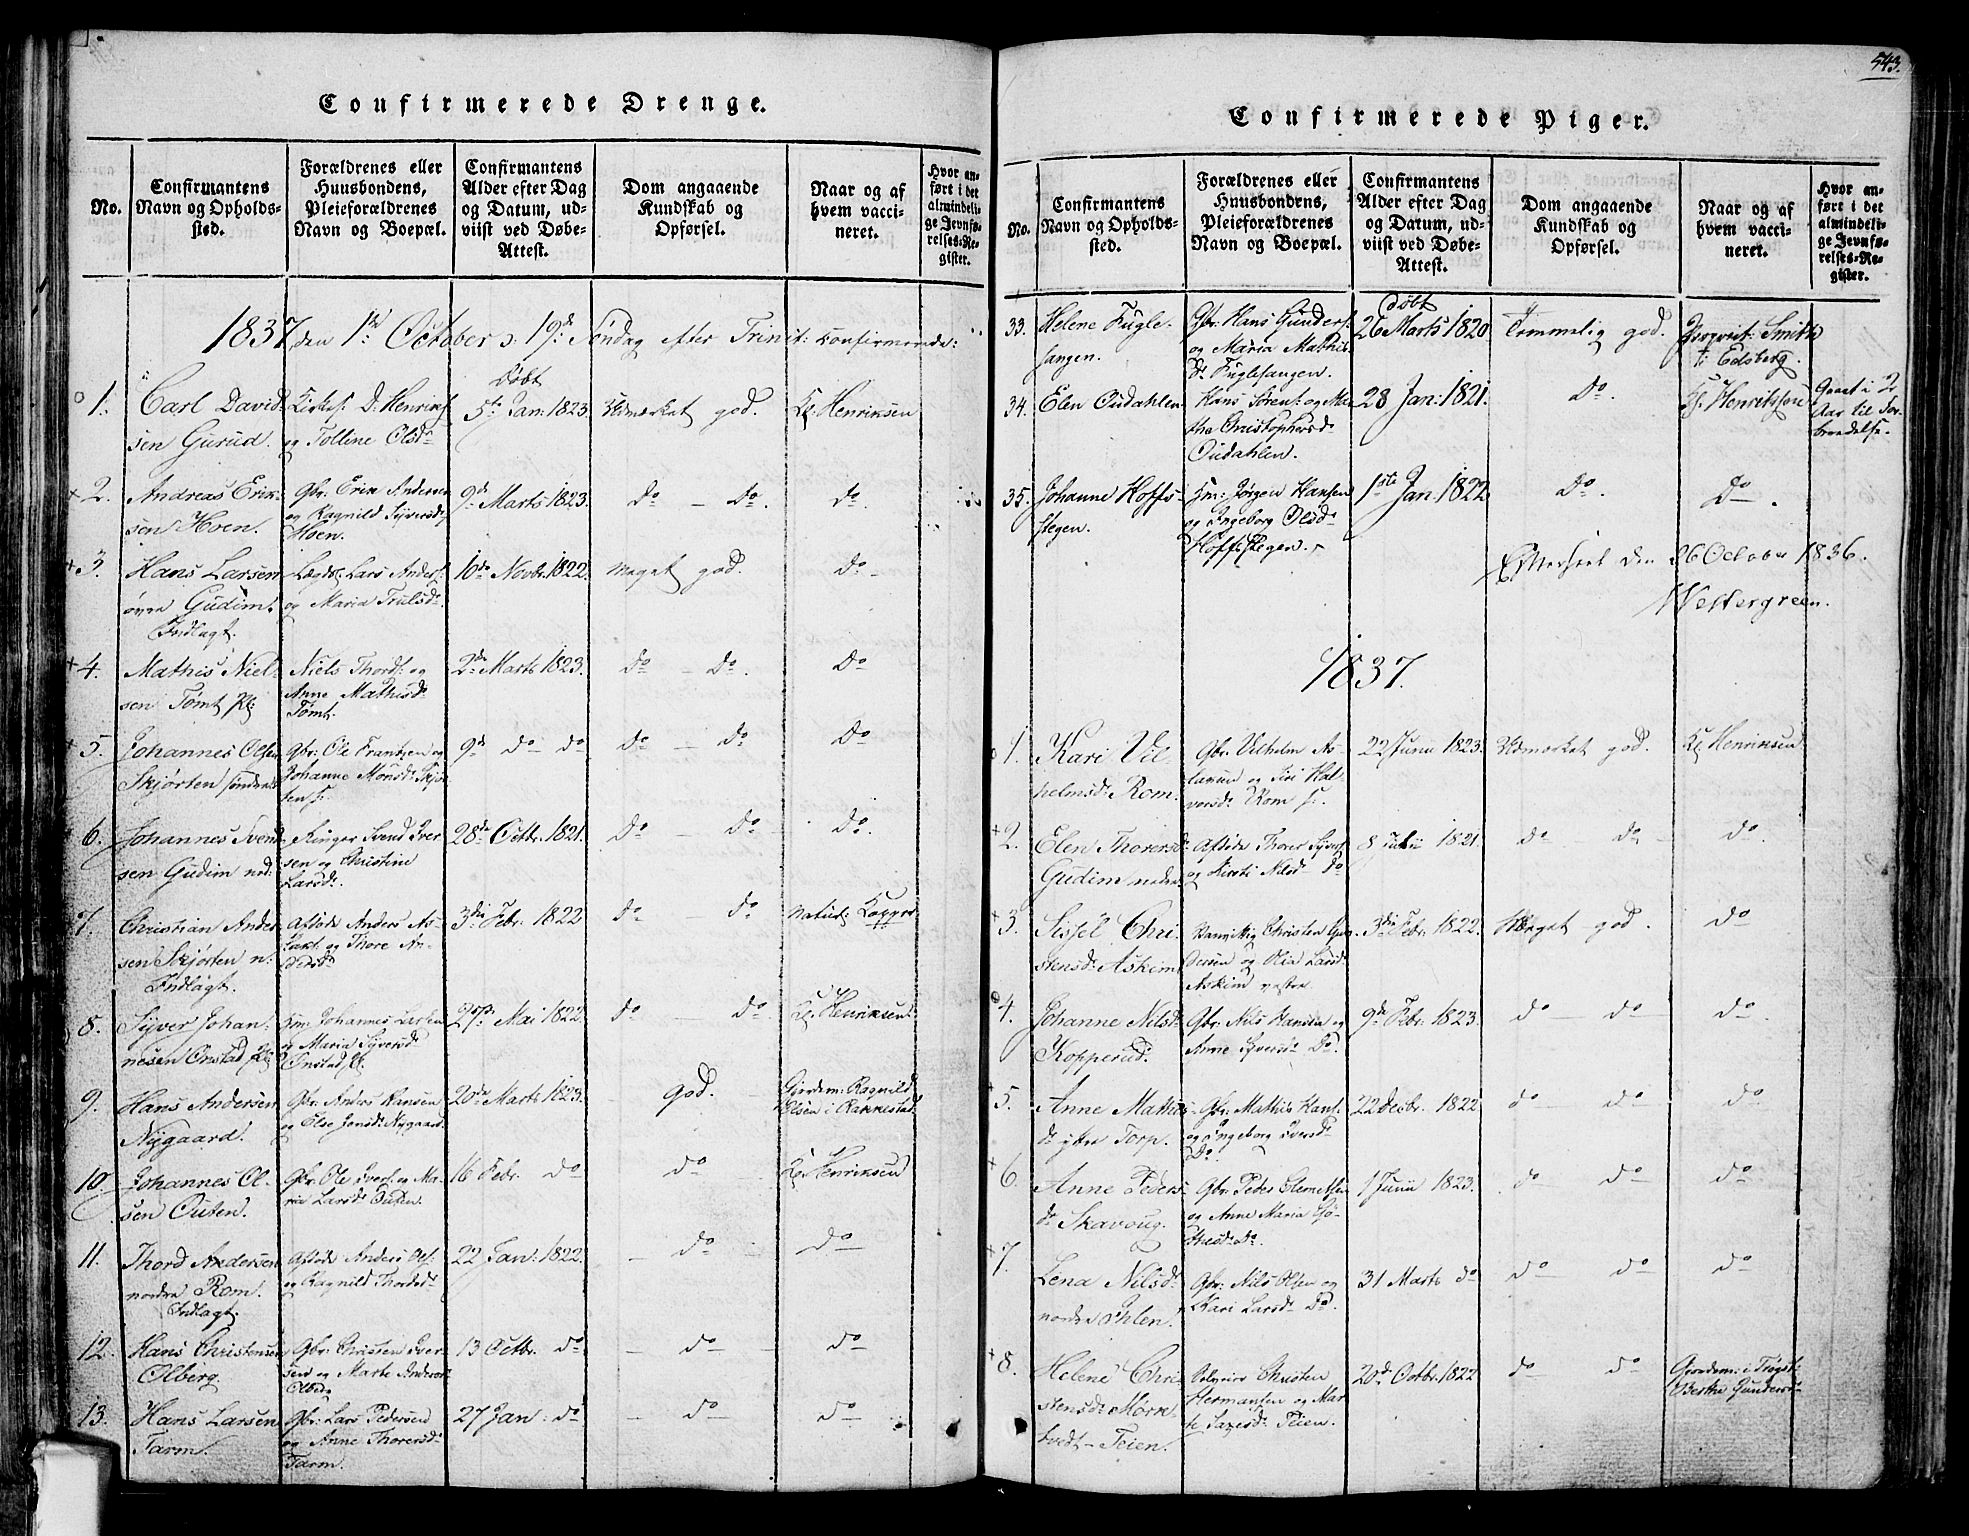 Confirmerede Drenge.
No.
Confirmantens
Navn og Opholds-
sted.
Forældrenes eller
Huusbondens,
Pleieforældrenes
Navn og Boepæl.
Confirmantens
Alder efter Dag
og Datum, ud-
viist ved Døbe-
Attest.
Dom angaaende
Kundskab og
Opførsel.
Naar og af
hvem vacci-
neret.
Hvor an-
ført i det
almindeli-
ge Jevnfø-
relses-Re-
gister.
1837, den 1ste October s: 19de Søndag efter Trinit: confirmerede:
1.
Carl David-
sen Gurud.
Kirkes: D: Henriks:
og Colline Olsdr
Døbt
5te Jan: 1823.
Udmærket god.
Kl: Henriksen
2.
Andreas Erik-
sen Hoen.
Gbr: Erik Andersen
og Ragnild Syversdr
Hoen.
9de Marts 1823.
do - do.
do.
3.
Hans Larsen
øvre Gudim.
Indlagt.
Lægds: Lars Anders:
og Maria Trulsdr.
10de Novbr. 1822.
Meget god.
do -
4.
Mathis Niel-
sen Tømt Pl:
Niels Thords: og
Anne Mathisdr
Tømt.
2de Marts 1823.
do - do.
Do
5.
Johannes Olsen
Skjørten søndre
Gbr: Ole Frantzen og
Johanne Monsdr Skjør-
ten s.
9de do do
do - do
Do
6.
Johannes Svend-
sen Gudim ned:
Ringer Svend Iver-
sen og Christine
Larsdr.
28de Octbr. 1821.
do - do -
do.
7.
Christian Ander-
sen Skjørten n:
Indlagt.
Afdøde Anders As-
laks: og Thore An-
dersdr
3die Febr. 1822
do - do
natur: Kopper
8.
Syver Johan-
nesen Onstad Pl:
Hm: Johannes Larsen
og Maria Syversdr
Onstad Pl:
27de Mai 1822
do - do.
Kl: Henriksen
9.
Hans Andersen
Nygaard.
Gbr: Anders Hansen
og Else Jensdr Nygaard.
20de Marts 1823.
god.
Gjordem: Ragnild
Olsen i Rakkestad
10.
Johannes Ol-
sen Outen.
Gbr. Ole Ivers: og Ma-
ria Larsdr Outen.
16 Febr. do
do
Kl: Henriksen
11.
Thord Andersen
nordre Rom.
Indlagt.
Afdøde Anders Ols:
og Ragnild Thordsdr
22 Jan: 1822.
- do -
do
12.
Hans Christensen
Olberg.
Gbr: Christen Iver-
sen og Marte Andersdr
Olberg
13 Octbr. do
- do -
do
13.
Hans Larsen
Farm.
Gbr: Lars Pedersen
og Anne Thoresdr
Farm.
27 Jan: do
- do -
do
543.
Confirmerede Piger.
No.
Confirmantens
Navn og Opholds-
sted.
Forældrenes eller
Huusbondens,
Pleieforældrenes
Navn og Boepæl.
Confirmantens
Alder efter Dag
og Datum, ud-
viist ved Døbe-
Attest.
Dom angaaende
Kundskab og
Opførsel.
Naar og af
hvem vacci-
neret.
Hvor an-
ført i det
almindeli-
ge Jevnfø-
relses-Re-
gister.
33.
Helene Fugle-
sangen.
Gbr: Hans Gunders:
og Maria Mathis-
dr Fuglesangen.
Døbt
26 Marts 1820
Temmelig god.
Smith
i Edsberg.
34.
Elen Oudahlen.
Hans Sørens: og Mar-
the Christophersdr
Oudahlen.
28 Jan: 1821.
Do.
Kl: Henriksen
Gaaet i 2
Aar til For-
beredelse.
35.
Johanne Hoffs-
stegen.
Hm: Jørgen Hansen
og Ingeborg Olsdr
Hoffsstegen.
1ste Jan. 1822.
Do.
Do.
Efterseet den 26 October 1836.
Westergreen.
1837.
1.
Kari Vil-
helmsdr Rom.
Gbr: Vilhelm As-
laksen og Siri Hal-
versdr Rom s:.
22 Junii 1823.
Udmærket god.
Kl: Henriksen
2.
Elen Thorersdr
Gudim nedre
Afdøde Thorer Syvers:
og Kirsti Nilsdr do
8 Julii 1821.
do do -
do
3.
Sissel Chri-
stensdr Askim
Christen Gun-
dersen og Olia Larsdr
Askim vestre
3die Febr. 1822.
Meget god.
do
4.
Johanne Nilsdr
Kopperud.
Gbr: Nils Hansen og
Anne Syversdr Do.
9de Febr. 1823.
do - do -
do -
5.
Anne Mathis-
dr ytre Torp.
Gbr: Mathis Hans:
og Ingeborg Iversdr
Do.
22 Decbr. 1822
do - do -
do
6.
Anne Peders-
dr Skavoug.
Gbr: Peder Clemetsen
og Anne Maria
do.
1 Junii 1823.
do - do -
do
7.
Lena Nilsdr
nordre Ihlen.
Gbr: Nils Olsen og
Kari Larsdr Do.
31 Marts do
do - do -
do
8.
Helene Chri-
stensdr Mørk-
tvedt-Teien.
Christen
Hermansen og Mar-
te Teien.
20de Octbr. 1822
do do
Gjordem: i Trøgst:
Berthe Gunders-